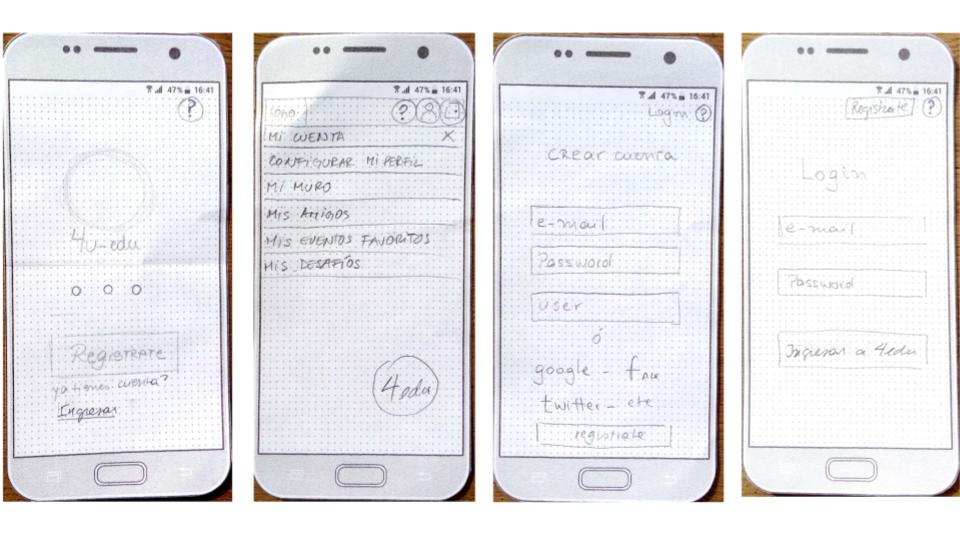 47% 16:41
?
4u-edu
REGISTRATE
ya tienes cuenta?
Ingresar
47% 16:41
LOGO ?
MI CUENTA X
CONFIGURAR MI PERFIL
MI MURO
Mis AMIGOS
MIS EVENTOS FAVORITOS
MIS DESAFÍOS
4edu
47% 16:41
Login ?
crear cuenta
e-mail
Password
user
ó
google -
twitter - etc
registrate
47% 16:41
Registrate ?
Login
e-mail
Password
Ingresar a 4edu